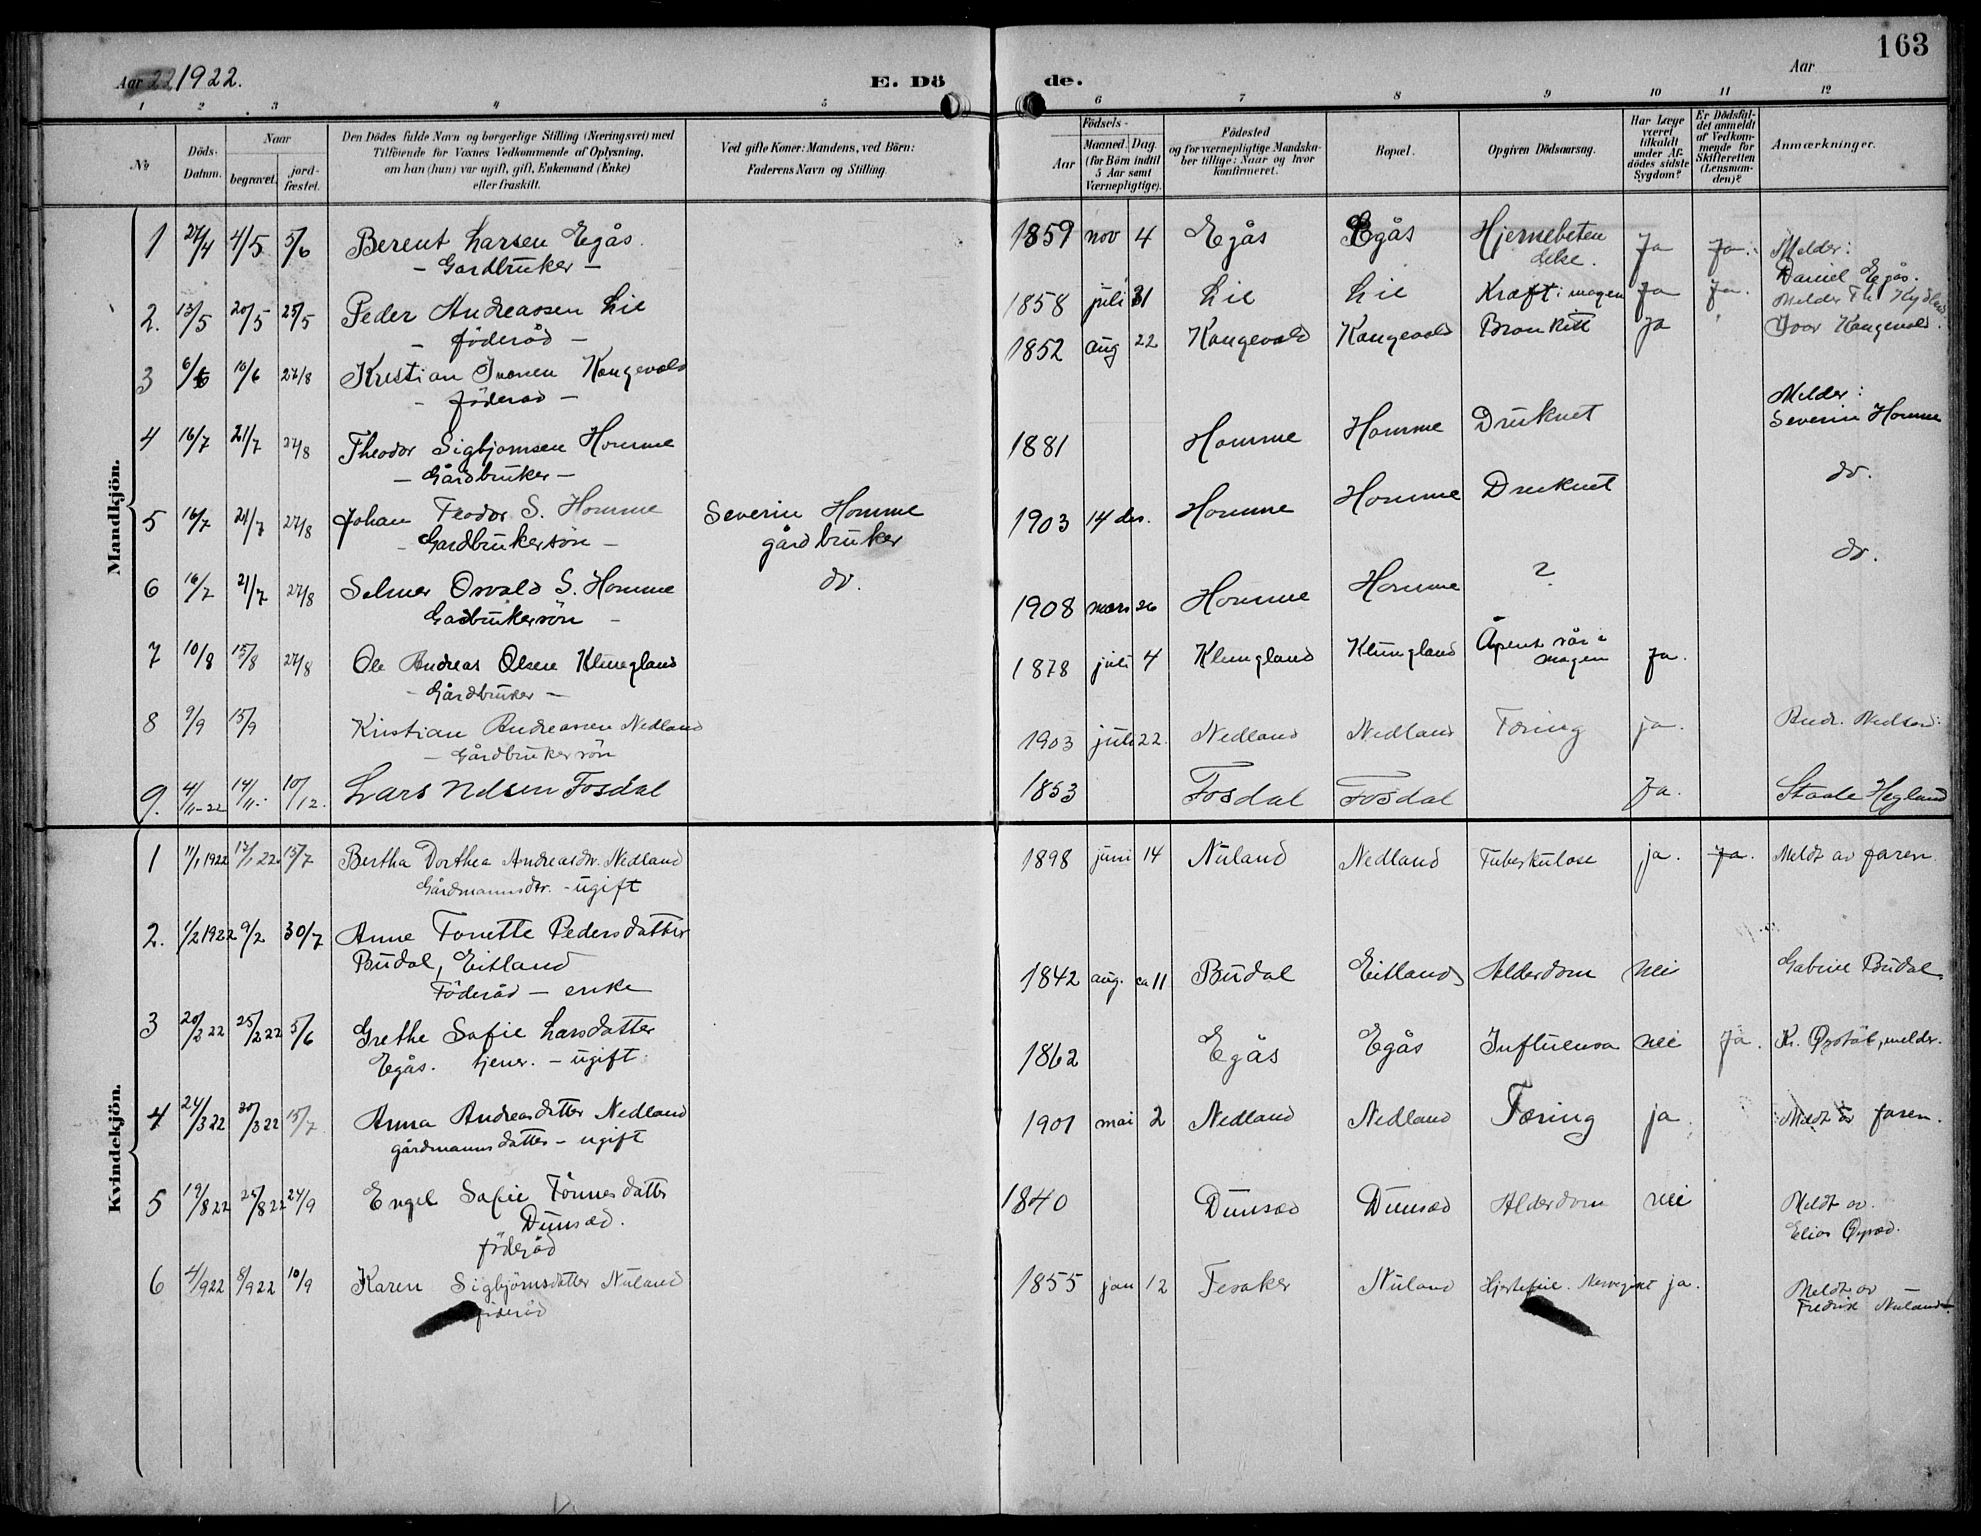 163
Aar 1922.
E. Döde.
Aar
1 2 3 4 5 6 7 8 9 10 11 12
No
Döds-Datum.
Naar
begravet.
jordfæstet.
Den Dödes fulde Navn og borgerlige Stilling (Næringsvei) med
Tilföiende for Voxnes Vedkommende af Oplysning,
om han (hun) var ugift, gift, Enkemand (Enke)
eller fraskilt.
Ved gifte Koner: Mandens, ved Börn:
Faderens Navn og Stilling.
Födsels-
Aar
Maaned. Dag.
(for Börn indtil
5 Aar samt
Værnepligtige).
Födested
og for værnepligtige Mandskaber tillige: Naar og hvor
konfirmeret.
Bopæl.
Opgiven Dödsaarsag.
Har Læge
været
tilkaldt
under Afdödes sidste
Sygdom?
Er Dödsfaldet anmeldt
af Vedkommende for
Skifteretten
(Lensmanden)?
Anmærkninger.
Mandkjön.
1 27/4 4/5 5/6 Berent Larsen Egås. 1859 nov 4 Egås Egås Hjernebeten Ja Ja. Melder:
- Gardbruker - delse. Daniel Egås.
2. 13/5 20/5 25/5 Peder Andreassen Lie 1858 juli 31 Lie Lie Kræft i magen Ja Ja. Melder
- föderåd -
3 6/6 10/6 27/8 Kristian Ivarsen Kongevold 1852 aug 22 Kongevold Kongevold Bronkitt Ja Ivar Kongevold.
- föderåd -
4 16/7 21/7 27/8 Theodor Sigbjørnsen Homme 1881 Homme Homme Druknet Melder: Severin Homme
- Gårdbruker -
5 16/7 21/7 27/8 Johan Teodor S. Homme Severin Homme 1903 14 des. Homme Homme Druknet do.
- Gardbrukersön - gårdbruker
6 16/7 21/7 27/8 Selmer Osvald S. Homme do. 1908 mars 26 Homme Homme ? do.
Gardbrukersön -
7 10/8 15/8 27/8 Ole Andreas Olsen Klungland 1878 juli 4 Klungland Klungland Åpent sår i magen Ja.
- Gårdbruker -
8 9/9 15/9 Kristian Andreassen Nedland 1903 juli 22. Nedland Nedland Tæring ja. Andr. Nedland.
- Gårdbrukersön
9. 4/11-22 14/11 10/12. Lars Nelsen Fosdal 1853 Fosdal Fosdal Ja. Staale Hegland
Kvindekjön.
1 11/1 1922 17/1 22 15/7 Bertha Dorthea Andreasdtr. Nedland 1898 juni 14 Nuland Nedland Tuberkulose ja. Ja. Meldt av faren.
Gårdmannsdtr. - ugift
2. 1/2 1922 9/2 30/7 Anne Tonette Pedersdatter
Budal, Eitland 1842 aug. ca 11 Budal Eitland Alderdom nei Gabriel Budal.
Föderåd - enke
3 20/2 22 25/2 22 5/6 Grethe Sofie Larsdatter 1862 Egås Egås Influensa nei Ja. Kr. melder.
Egås. tjener. - ugift
4 24/3 22 30/3 22 15/7 Anna Andreasdatter Nedland 1901 mai 2 Nedland Nedland Tæring ja. Meldt av faren.
gårdmannsdatter - ugift
5 19/8 22 25/8 22 24/9 Engel Sofie Tönnesdatter 1840 Dunsæd Dunsæd Alderdom nei Meldt av
Dunsæd. Elias
föderåd
6 4/9 22 8/9 22 10/9 Karen Sigbjörnsdatter Nuland 1855 jan 12 Fesaker Nuland Hjertefeil. ja. Meldt av
föderåd Fredrik Nuland.